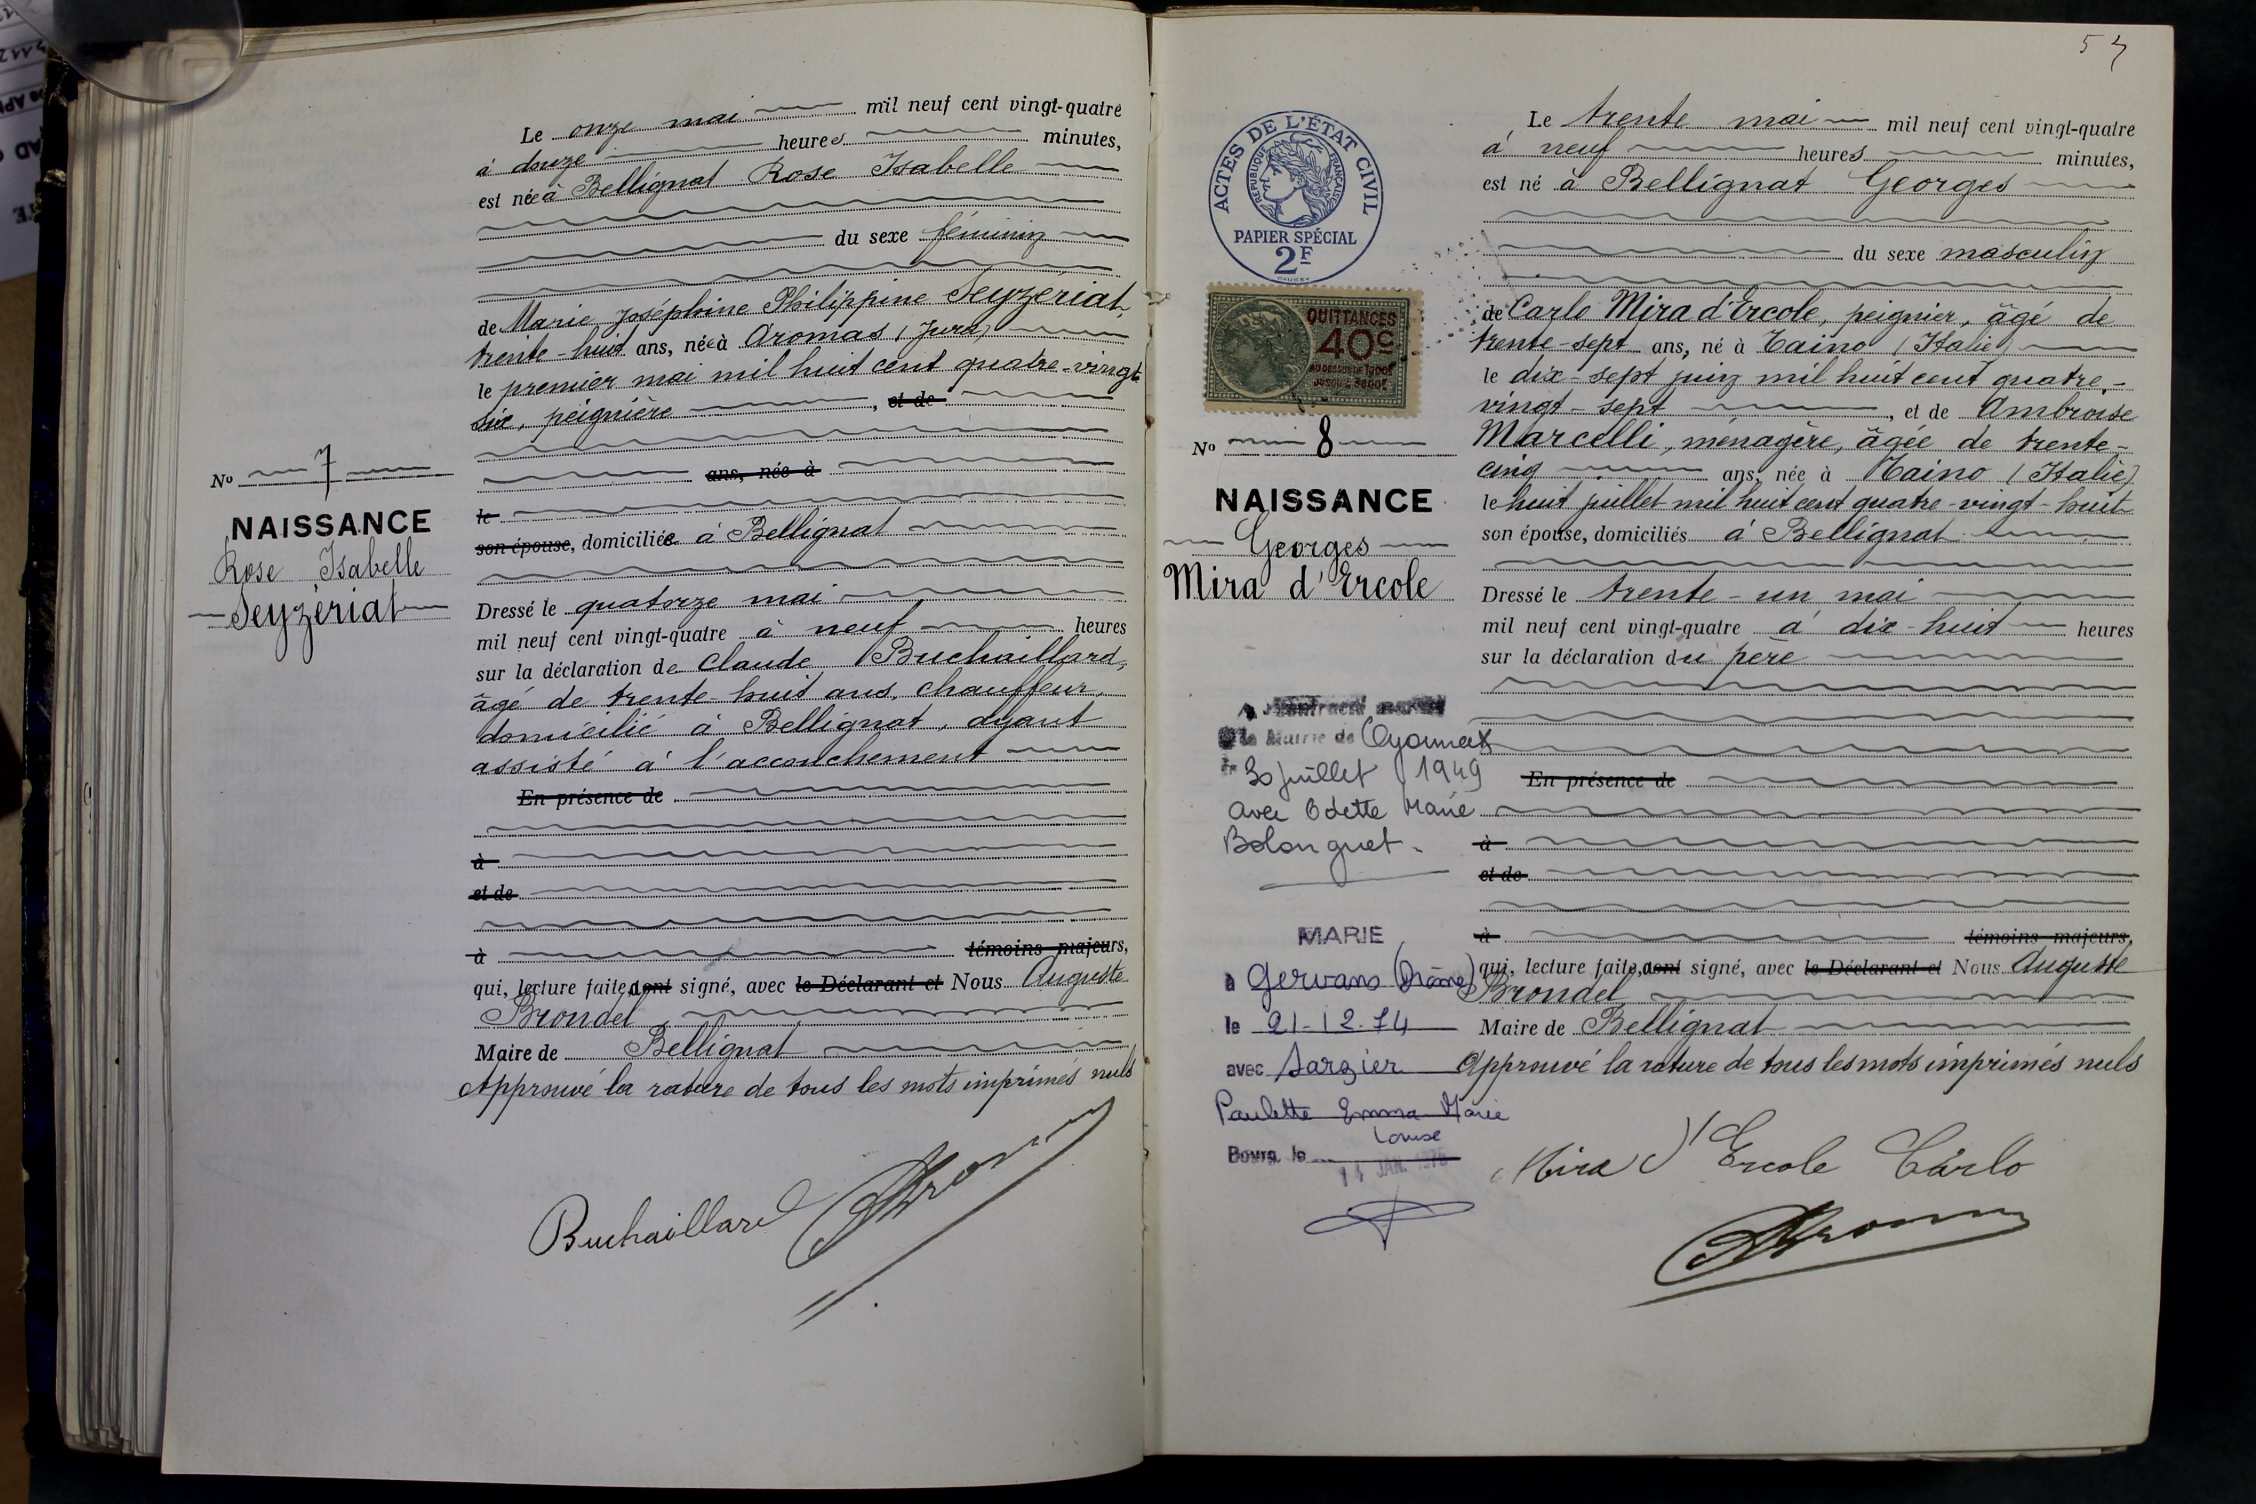 Le onze mai mil neuf cent vingt-quatre
à douze heures minutes,
est née à Bellignat Rose Isabelle
du sexe féminin
de Marie Joséphine Philippine Seyzériat,
trente-huit ans, née à Aromas (Jura)
le premier mai mil huit cent quatre-vingt
six, peignière, et de
ans, née à
le
son épouse, domiciliée à Bellignat
Dressé le quatorze mai
mil neuf cent vingt-quatre à neuf heures
sur la déclaration de Claude Buchaillard,
âgé de trente-huit ans, chauffeur,
domicilié à Bellignat, ayant
assisté à l'accouchement
En présence de
à
et de
à témoins majeurs,
qui, lecture faite, ont signé, avec le Déclarant et Nous Auguste
Brondel
Maire de Bellignat
Approuvé la rature de tous les mots imprimés nuls
Buchaillard
No 7
NAISSANCE
Rose Isabelle
Seyzériat
ACTES DE L'ÉTAT CIVIL
RÉPUBLIQUE FRANÇAISE
PAPIER SPÉCIAL
2F
QUITTANCES
40c
AU DESSUS DE 1000F
JUSQU'À 3000F
No 8
NAISSANCE
Georges
Mira d'Ercole
la Mairie de Oyonnax
30 juillet 1949
avec Odette Marie
Bolonguet.
MARIE
à Gervans (Drôme)
le 21-12-74
avec Sarzier
Paulette Emma Marie
Louise
Bourg le 14 JAN. 1975
Le trente mai mil neuf cent vingt-quatre
à neuf heures minutes,
est né à Bellignat Georges
du sexe masculin
de Carlo Mira d'Ercole, peignier, âgé de
trente-sept ans, né à Taino (Italie)
le dix-sept juin mil huit cent quatre-
vingt-sept, et de Ambroise
Marcelli, ménagère, âgée de trente-
cinq ans, née à Taino (Italie)
le huit juillet mil huit cent quatre-vingt-huit
son épouse, domiciliés à Bellignat
Dressé le trente-un mai
mil neuf cent vingt-quatre à dix-huit heures
sur la déclaration du père
En présence de
à
et de
à témoins majeurs,
qui, lecture faite, ont signé, avec le Déclarant et Nous Auguste
Brondel
Maire de Bellignat
Approuvé la rature de tous les mots imprimés nuls
Mira d'Ercole Carlo